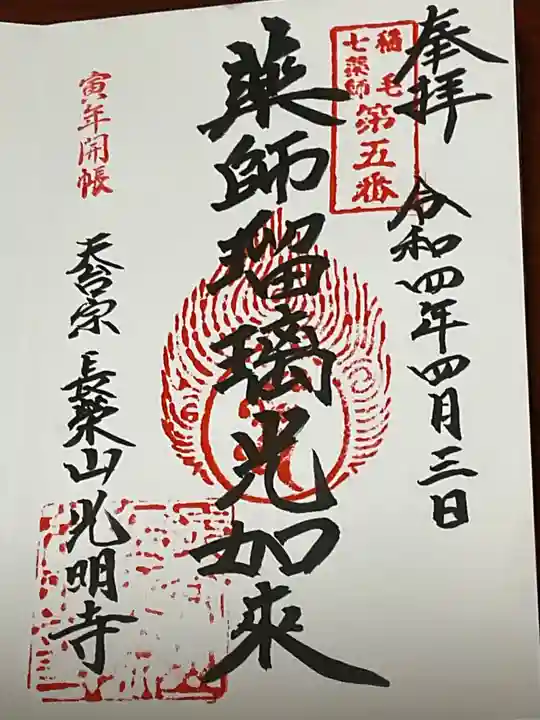 奉拝
令和四年四月三日
稲毛
七薬師
第五番
薬師瑠璃光如来
寅年開帳
天台宗
長榮山光明寺